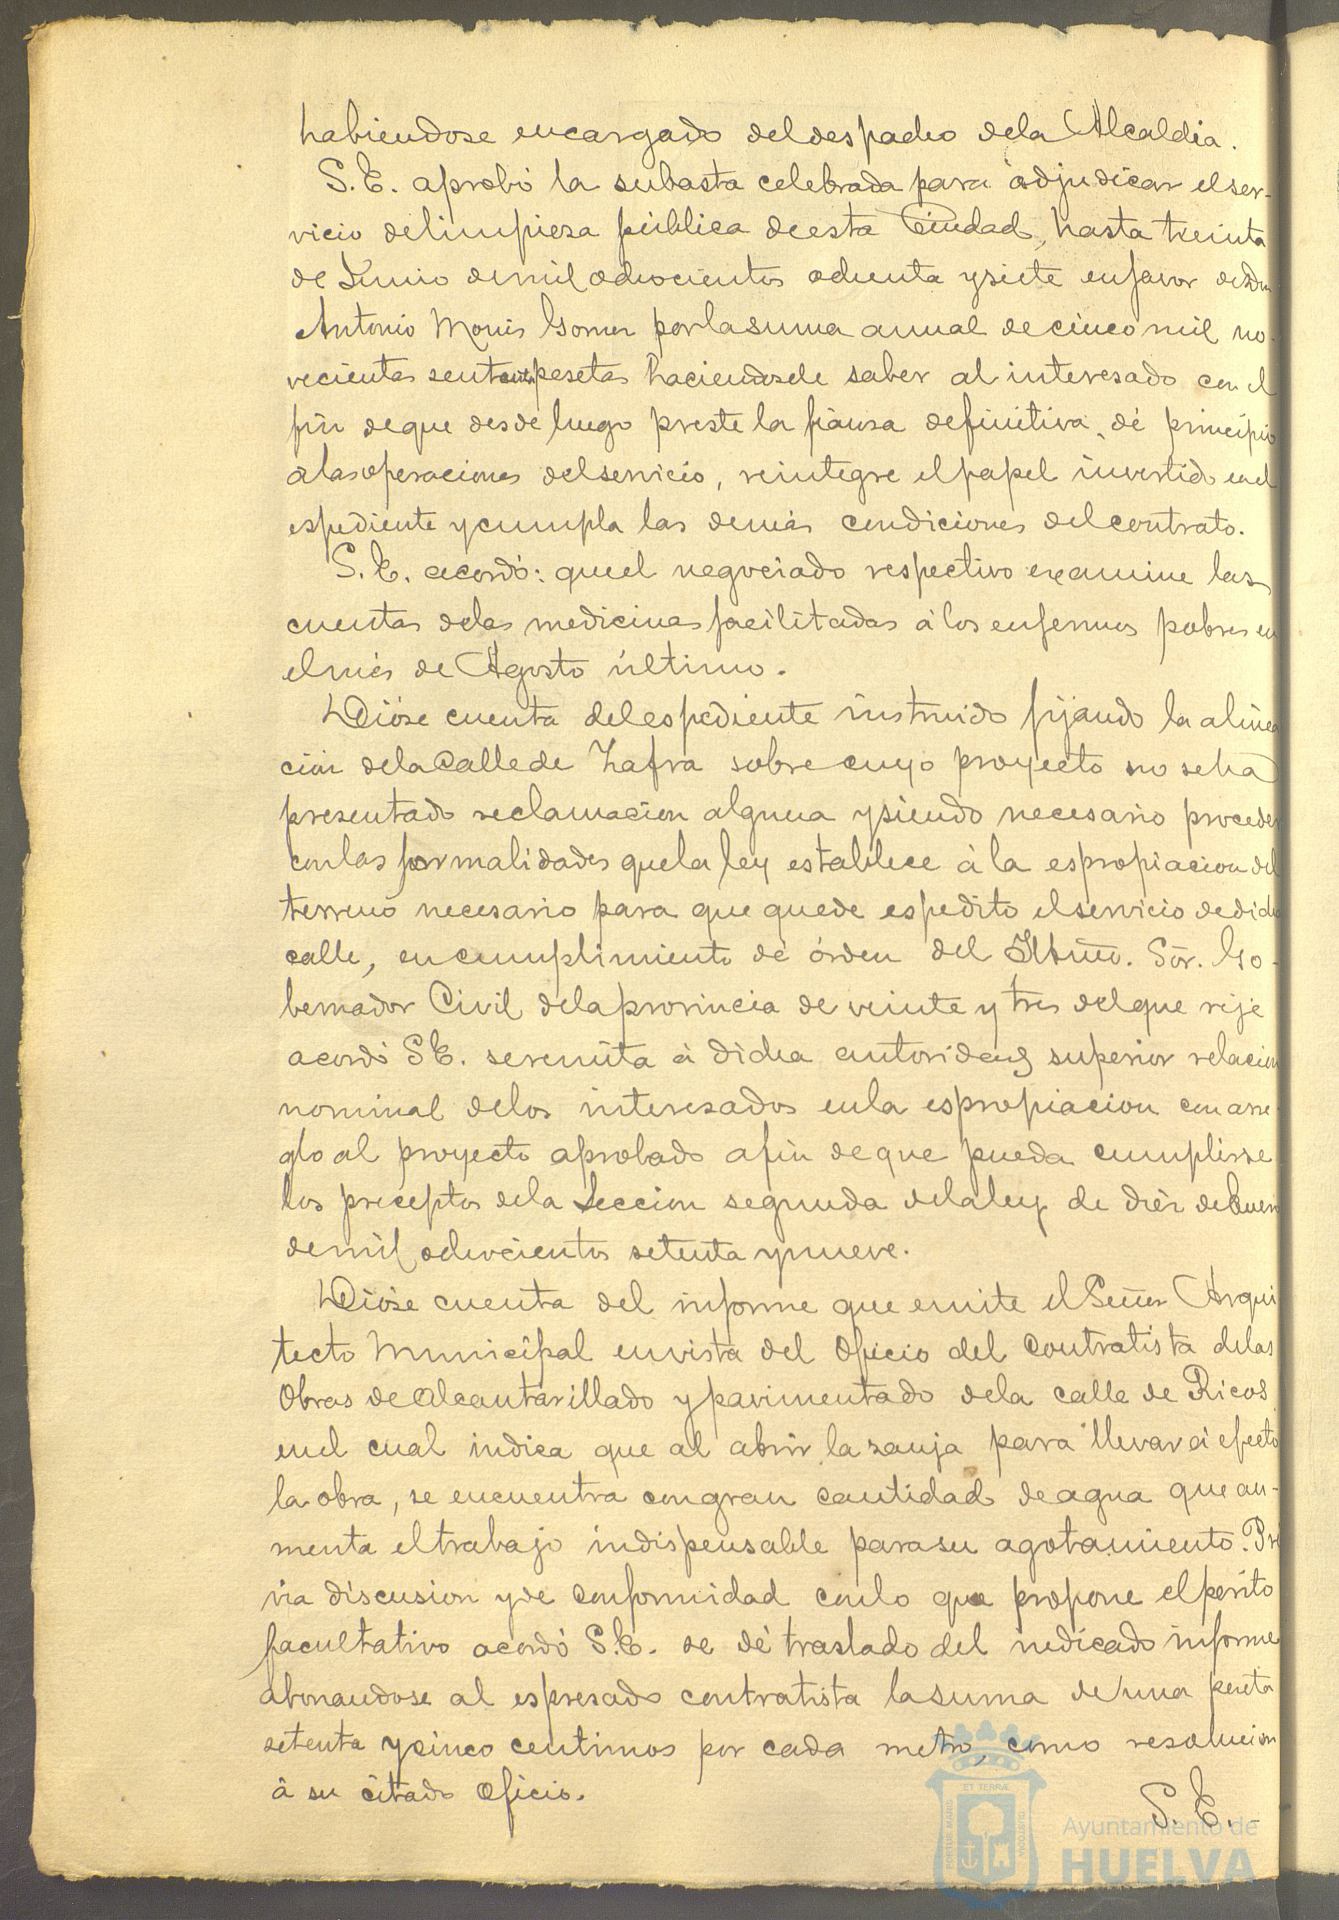 habiendose encargado del despacho de la Alcaldia.
S. E. aprobó la subasta celebrada para adjudicar el ser-
vicio de limpieza pública de esta Ciudad, hasta treinta
de Junio de mil ochocientos ochenta y siete en favor de Don
Antonio Monis Gomez por la suma anual de cinco mil no-
vecientas pesetas haciendosele saber al interesado con el
fin de que desde luego preste la fianza definitiva, dé principio
a las operaciones del servicio, reintegre el papel invertido en el
espediente y cumpla las demás condiciones del contrato.
S. E. acordó: que el negociado respectivo examine las
cuentas de las medicinas facilitadas á los enfermos pobres en
el més de Agosto último.
Dióse cuenta del espediente instruido fijando la alinea
ción de la Calle de Zafra sobre cuyo proyecto no se ha
presentado reclamacion alguna y siendo necesario proceder
con las formalidades que la ley establece á la espropiacion del
terreno necesario para que quede espedito el servicio de dicha
calle, en cumplimiento de órden del Iltmo. Sór. Go-
bernador Civil de la provincia de veinte y tres del que rije
acordó S E. se remita á dicha autoridad superior relacion
nominal de los interesados en la espropiacion con arre-
glo al proyecto aprobado a fin de que pueda cumplirse
los preceptos de la Seccion segunda de la ley de diéz de Enero
de mil ochocientos setenta y nueve.
Dióse cuenta del informe que emite el Señor Arqui
tecto Municipal en vista del Oficio del Contratista de las
Obras de Alcantarillado y pavimentado de la calle de Ricos
en el cual indica que al abrir la zanja para llevar á efecto
la obra, se encuentra con gran cantidad de agua que au-
menta el trabajo indispensable para su agotamiento. Pré
via discusion y de conformidad con lo que propone el perito
facultativo acordó S. E. se dé traslado del indicado informe
abonandose al espresado contratista la suma de una peseta
setenta y cinco centimos por cada metro, como resolucion
á su citado Oficio.
S. E.-
ET TERRÆ
PORTUS MARIS
CUSTODIA
Ayuntamiento de
HUELVA